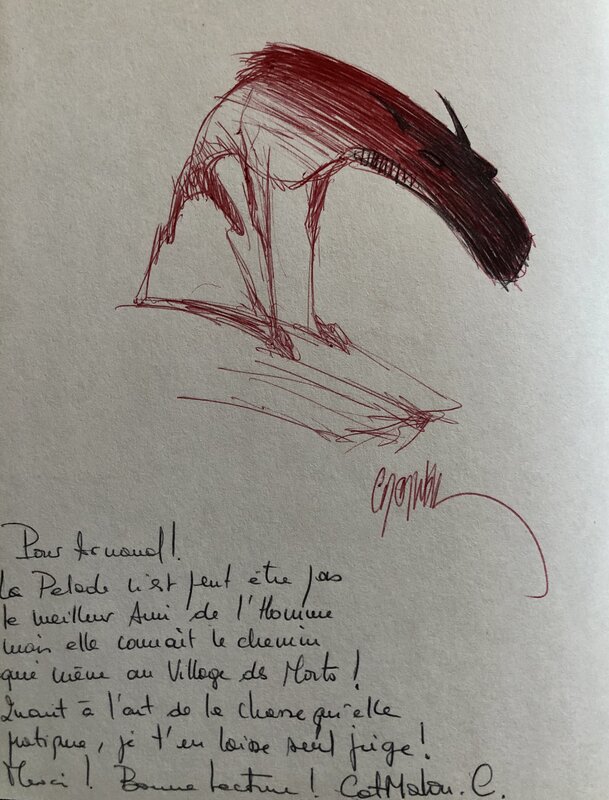 Pour Arnaud !
La Pelade n'est peut être pas
le meilleur Ami de l'Homme
mais elle connaît le chemin
qui mène au Village des Morts !
Quant à l'art de la chasse qu'elle
pratique, je t'en laisse seul juge !
Merci ! Bonne Lecture ! CatMalou. C.